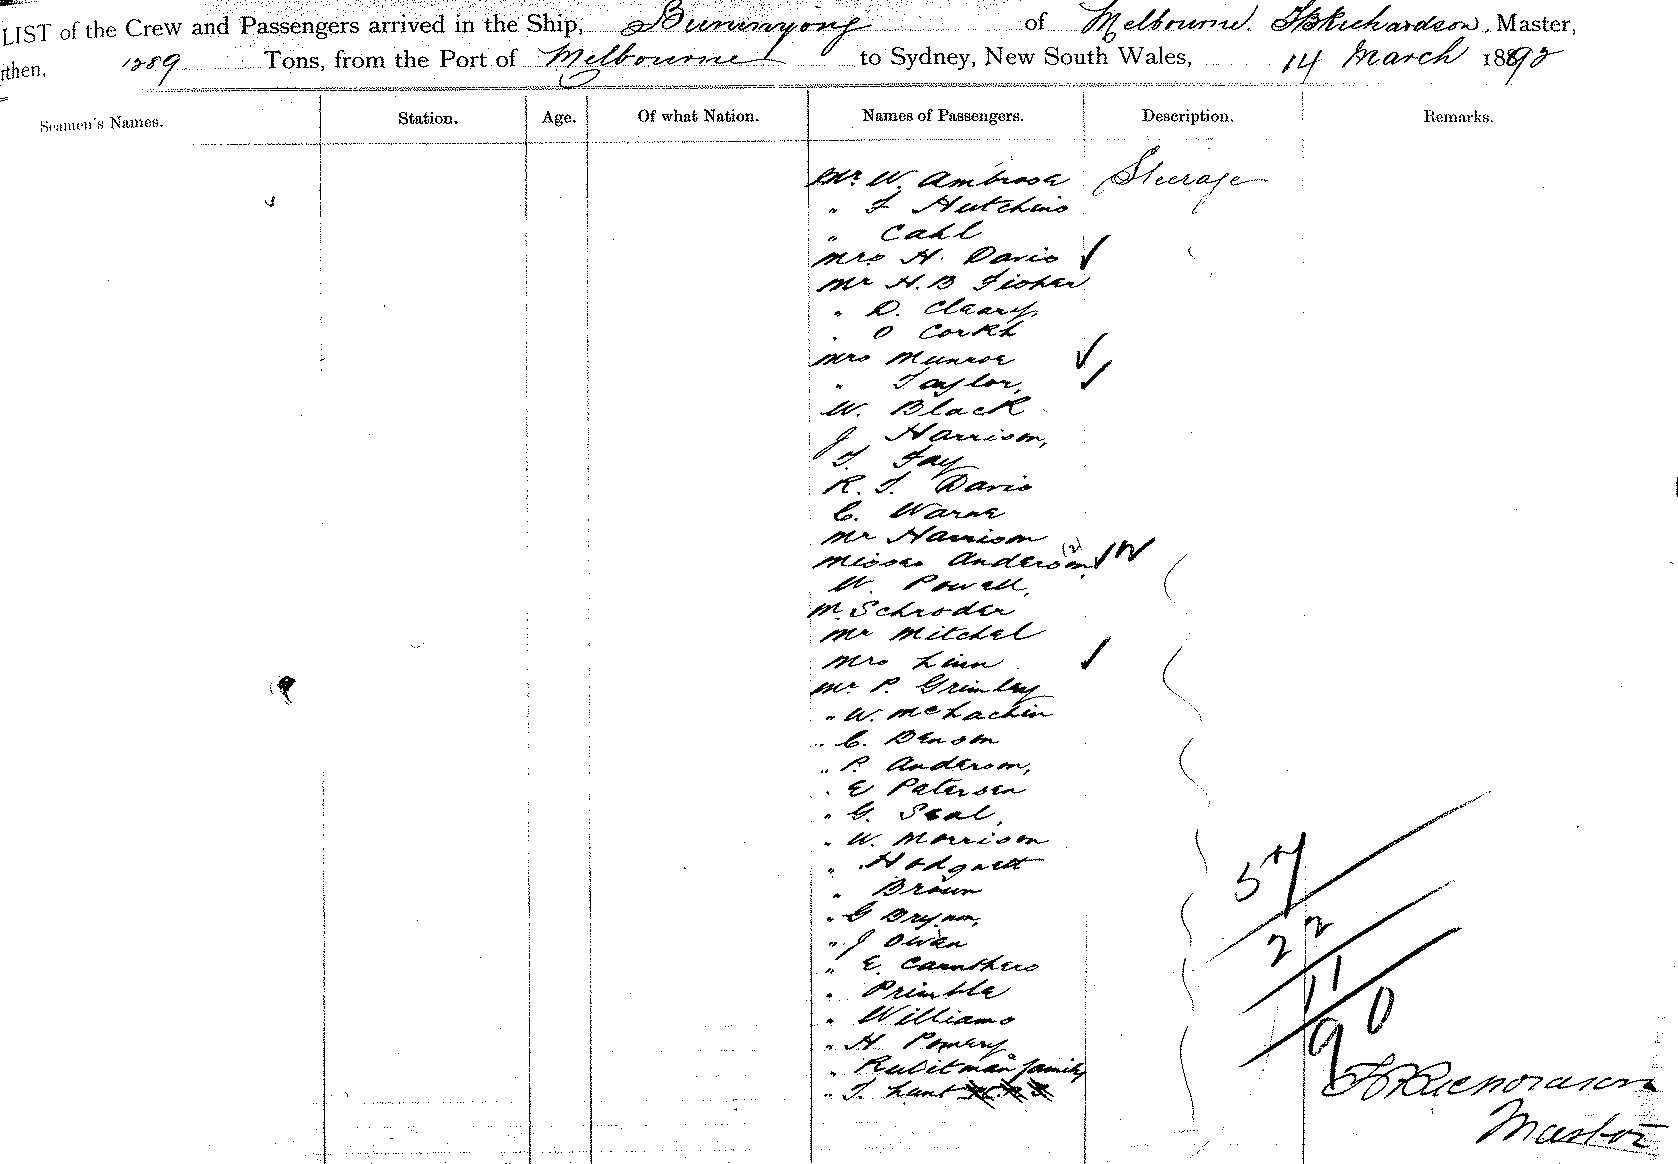 LIST of the Crew and Passengers arrived in the Ship, Buninyong of Melbourne. Richardson, Master,
rthen, 1289 Tons, from the Port of Melbourne to Sydney, New South Wales, 14 March 1892
Seamen's Names. Station. Age. Of what Nation. Names of Passengers. Description. Remarks.
Mr W. Ambrose Steerage
" T Hutchins
" Cahl
Mrs H. Davis
Mr H. B Fisher
" D. Cleary
" O Corkh
Mrs Munroe
" Taylor,
W. Black
J Harrison,
T. Fay
R. T. Davis
C. Warne
Mr Harrison
Misses Anderson (2)
W. Powell,
M. Schroder
Mr Mitchel
Mrs Linn
Mr P. Grimley
" W. McLachin
" C. Benson
" P. Anderson,
" E Petersen
" G. Seal,
" W. Morrison
" Hodgett
" Brown
" G Bryan,
" J Owen
" E. Caruthers
" Primble
" Williams
" H Pomery
" family
" T. Lunt
57
22
11
90
Richardson
Master